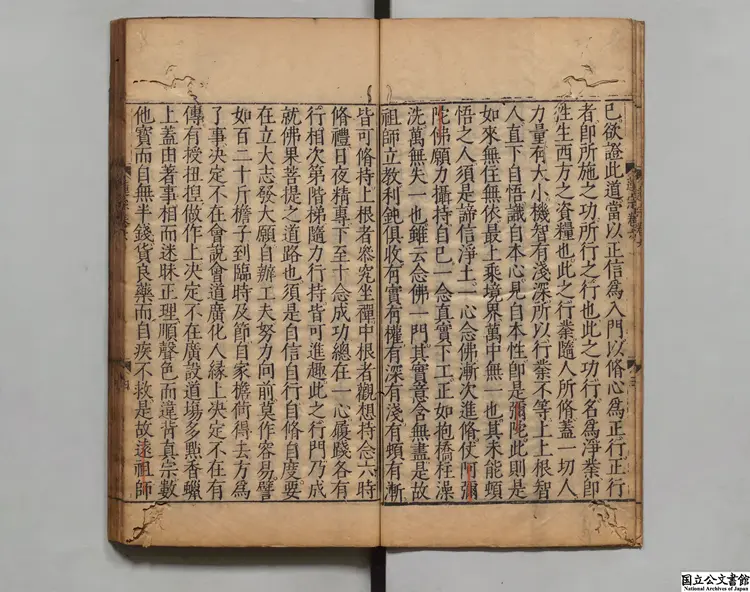 已欲證此道當以正信為入門以脩心為正行正行
者即所施之功所行之行也此之功行名爲淨業即
往生西方之資糧也此之行業隨人所脩蓋一切人
力量有大小機智有淺深所以行業不等上上根智
人直下自悟識自本心見自本性即是彌陀此則是
如來無住無依最上乘境界萬中無一也其未能頓
悟之人須是諦信淨土一心念佛漸次進脩仗阿彌
陀佛願力攝持自己一念真實下工正如抱橋柱澡
洗萬無失一也雖云念佛一門其實意含無盡是故
祖師立教利鈍俱收有實有權有深有淺有頓有漸
皆可脩持上根者叅究坐禪中根者觀想持念六時
脩禮日夜精專下至十念成功總在一心履踐各有
行相次第階梯隨力行持皆可進趣此之行門乃成
就佛果菩提之道路也須是自信自行自脩自度要
在立大志發大願自辦工夫努力向前莫作容易譬
如百二十斤擔子到臨時及節自家擔荷得去方為
了事決定不在會說會道廣化人緣上決定不在有
傳有授扭捏做作上決定不在廣設道場多點香蠟
上蓋由著事相而迷昧正理順聲色而違背真宗數
他寳而自無半錢貨良藥而自疾不救是故遠祖師
国立公文書館
National Archives of Japan